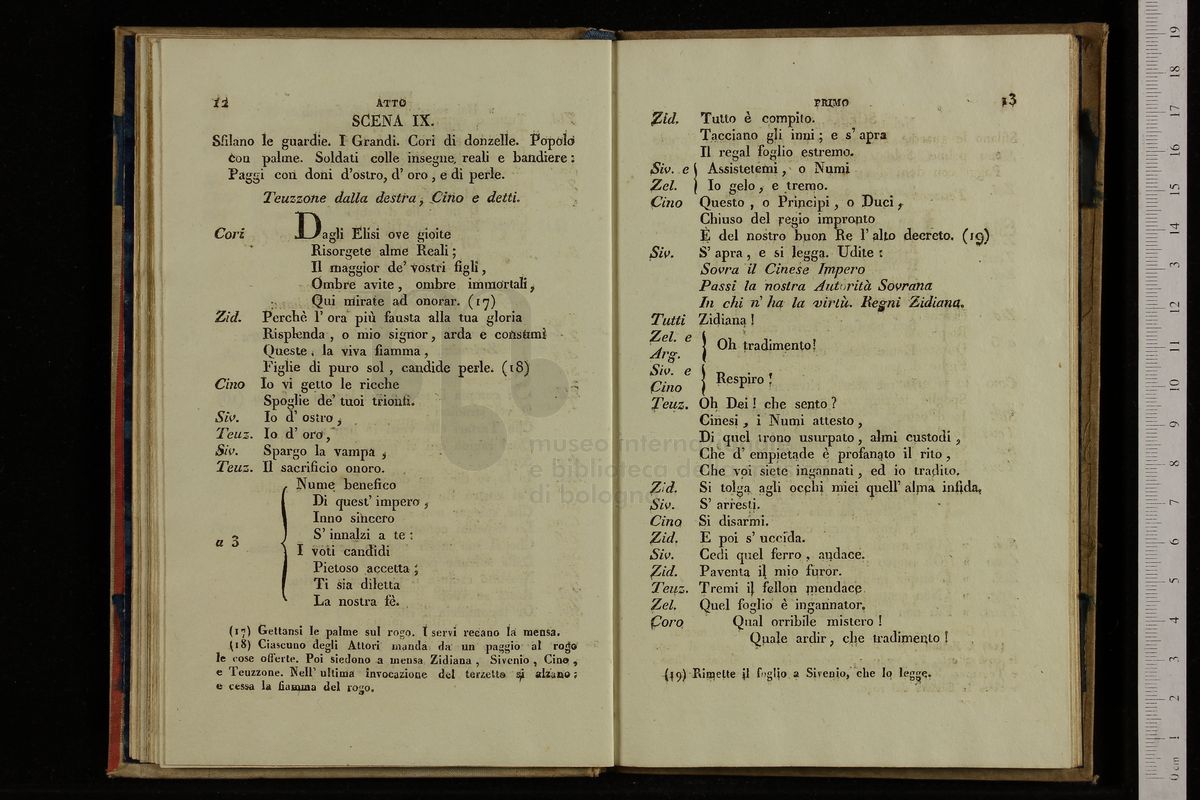 12 ATTO
SCENA IX.
Sfilano le guardie. I Grandi. Cori di donzelle. Popolo
con palme. Soldati colle insegne reali e bandiere:
Paggi con doni d'ostro, d' oro, e di perle.
Teuzzone dalla destra, Cino e detti.
Cori Dagli Elisi ove gioite
Risorgete alme Reali;
Il maggior de' vostri figli,
Ombre avite, ombre immortali,
Qui mirate ad onorar. (17)
Zid. Perchè l' ora più fausta alla tua gloria
Risplenda, o mio signor, arda e consumi
Queste, la viva fiamma,
Figlie di puro sol, candide perle. (18)
Cino Io vi getto le ricche
Spoglie de' tuoi trionfi.
Siv. Io d' ostro,
Teuz. Io d' oro,
Siv. Spargo la vampa,
Teuz. Il sacrificio onoro.
Nume benefico
Di quest' impero,
Inno sincero
S' innalzi a te:
a 3
I voti candidi
Pietoso accetta;
Ti sia diletta
La nostra fè.
(17) Gettansi le palme sul rogo. I servi recano la mensa.
(18) Ciascuno degli Attori manda da un paggio al rogo
le cose offerte. Poi siedono a mensa Zidiana, Sivenio, Cino,
e Teuzzone. Nell' ultima invocazione del terzetto si alzano;
e cessa la fiamma del rogo.
PRIMO 13
Zid. Tutto è compito.
Tacciano gli inni; e s' apra
Il regal foglio estremo.
Siv. e Assistetemi, o Numi
Zel. Io gelo, e tremo.
Cino Questo, o Principi, o Duci,
Chiuso del regio impronto
È del nostro buon Re l' alto decreto. (19)
Siv. S' apra, e si legga. Udite:
Sovra il Cinese Impero
Passi la nostra Autorità Sovrana
In chi n' ha la virtù. Regni Zidiana.
Tutti Zidiana!
Zel. e
Arg. Oh tradimento!
Siv. e
Cino Respiro!
Teuz. Oh Dei! che sento?
Cinesi, i Numi attesto,
Di quel trono usurpato, almi custodi,
Che d' empietade è profanato il rito,
Che voi siete ingannati, ed io tradito.
Zid. Si tolga agli occhi miei quell' alma infida.
Siv. S' arresti.
Cino Si disarmi.
Zid. E poi s' uccida.
Siv. Cedi quel ferro, audace.
Zid. Paventa il mio furor.
Teuz. Tremi il fellon mendace
Zel. Quel foglio è ingannator.
Coro Qual orribile mistero!
Quale ardir, che tradimento!
(19) Rimette il foglio a Sivenio, che lo legge.
museo internazionale
e biblioteca de
di bologna
0 cm 1 2 3 4 5 6 7 8 9 10 11 12 13 14 15 16 17 18 19